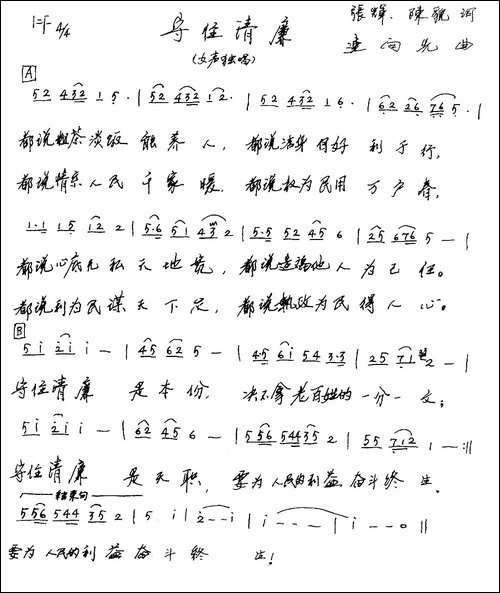 1=F 4/4
守住清廉
(女声独唱)
張輝、陳 词
 向先 曲
A
52 432 1 5· | 52 432 12· | 52 432 1 6· | 62 26 765· |
都说粗茶淡饭 能养人, 都说洁身自好 利于行,
都说情系人民 千家暖, 都说权为民用 万户春,
1·1 15 12 2 | 5·6 51 43 2 | 5·5 52 45 6 | 25 676 5 — |
都说心底无私天地宽, 都说造福他人为己任。
都说利为民谋天下 , 都说执政为民得人心。
B
5i 2ii i — | 45 62 5 — | 4·5 6i 54 3·3 | 25 71 2 — |
守住清廉 是本份, 决不拿老百姓的一分一文;
5i 2ii i — | 62 45 6 — | 556 544 35 2 | 55 712 1 — :||
守住清廉 是天职, 要为人民的利益奋斗终生。
结束句
556 544 35 2 | 5 i | 2 – – i | i – – – | i – – 0 ||
要为人民的利益奋斗终 生!